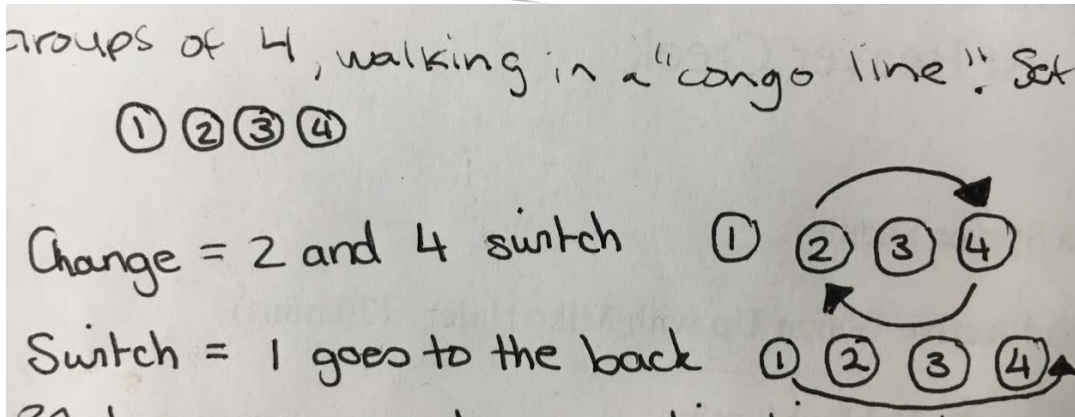 Groups of 4, walking in a "congo line". Set
① ② ③ ④
Change = 2 and 4 switch ① ② ③ ④
Switch = 1 goes to the back ① ② ③ ④